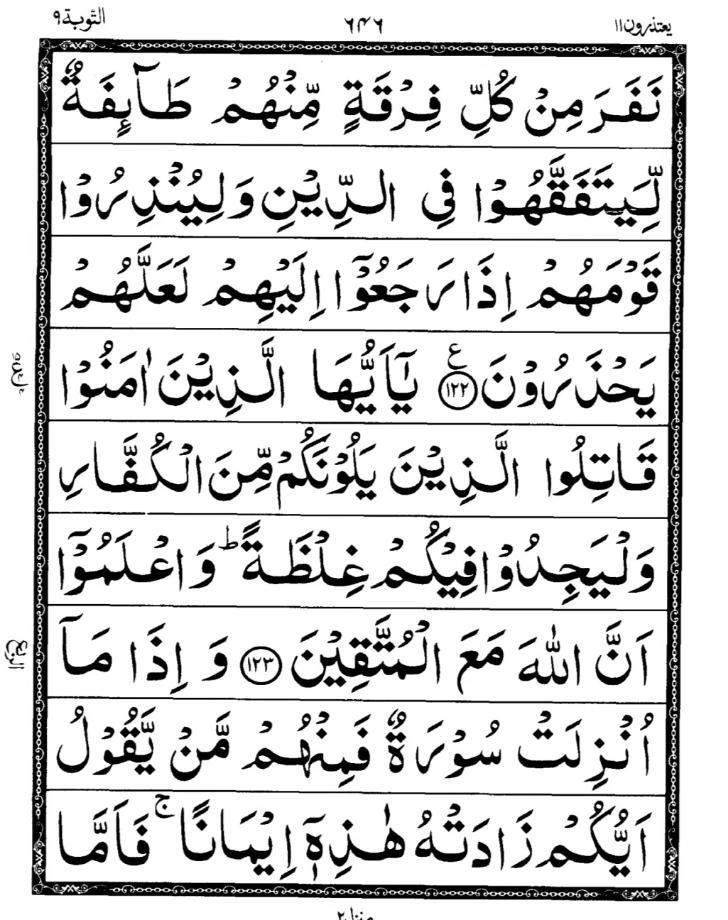 يعتذرون۱۱ ۶۴۶ التوبة۹
نَفَرَ مِنْ كُلِّ فِرْقَةٍ مِّنْهُمْ طَآئِفَةٌ
لِّيَتَفَقَّهُوْا فِي الدِّيْنِ وَلِيُنْذِرُوْا
قَوْمَهُمْ اِذَا رَجَعُوْٓا اِلَيْهِمْ لَعَلَّهُمْ
يَحْذَرُوْنَ ﴿۱۲۲﴾ ع يٰٓاَيُّهَا الَّذِيْنَ اٰمَنُوْا
قَاتِلُوا الَّذِيْنَ يَلُوْنَكُمْ مِّنَ الْكُفَّارِ
وَلْيَجِدُوْا فِيْكُمْ غِلْظَةً ؕ وَاعْلَمُوْٓا
اَنَّ اللّٰهَ مَعَ الْمُتَّقِيْنَ ﴿۱۲۳﴾ وَ اِذَا مَآ
الربع
اُنْزِلَتْ سُوْرَةٌ فَمِنْهُمْ مَّنْ يَّقُوْلُ
اَيُّكُمْ زَادَتْهُ هٰذِهٖٓ اِيْمَانًا ۚ فَاَمَّا
منزل۲